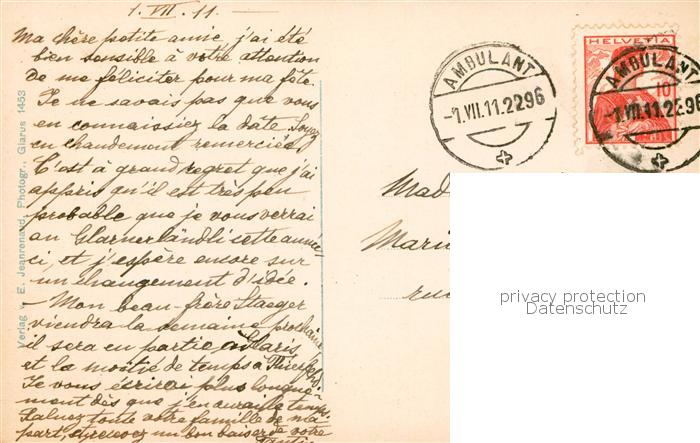 1.VII.11.
Ma chère petite amie j'ai été
bien sensible à votre attention
de me féliciter pour ma fête.
Je ne savais pas que vous
en connaissiez la date. Soyez
en chaudement remerciée.
C'est à grand regret que j'ai
appris qu'il est très peu
probable que je vous verrai
au Glarnerländli cette année-
ci, et j'espère encore sur
un changement d'idée.
— Mon beau-frère Staeger
viendra la semaine prochaine
il sera en partie à Glaris
et la moitié de temps à
Je vous écrirai plus longue-
ment dès que j'en aurai le temps.
Saluez toute votre famille de ma
part, et recevez un bon baiser de votre
Verlag v. E. Jeanrenaud, Photogr., Glarus 1453
AMBULANT
-1.VII.11.2296
HELVETIA
10
AMBULANT
-1.VII.11.2296
Mad
Mari
rue
privacy protection
Datenschutz